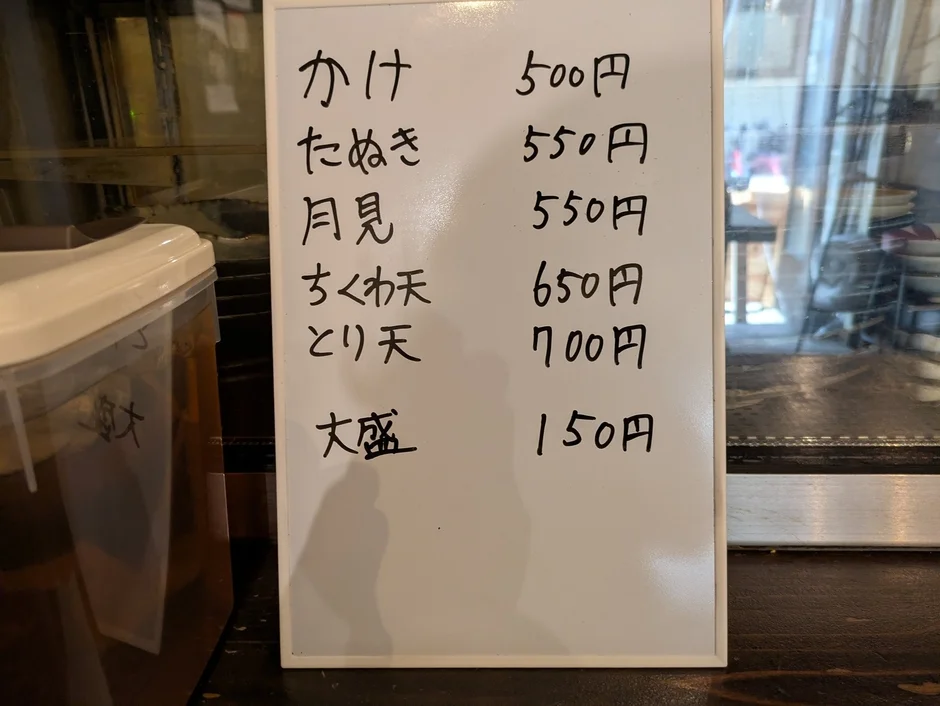 かけ 500円
たぬき 550円
月見 550円
ちくわ天 650円
とり天 700円
大盛 150円